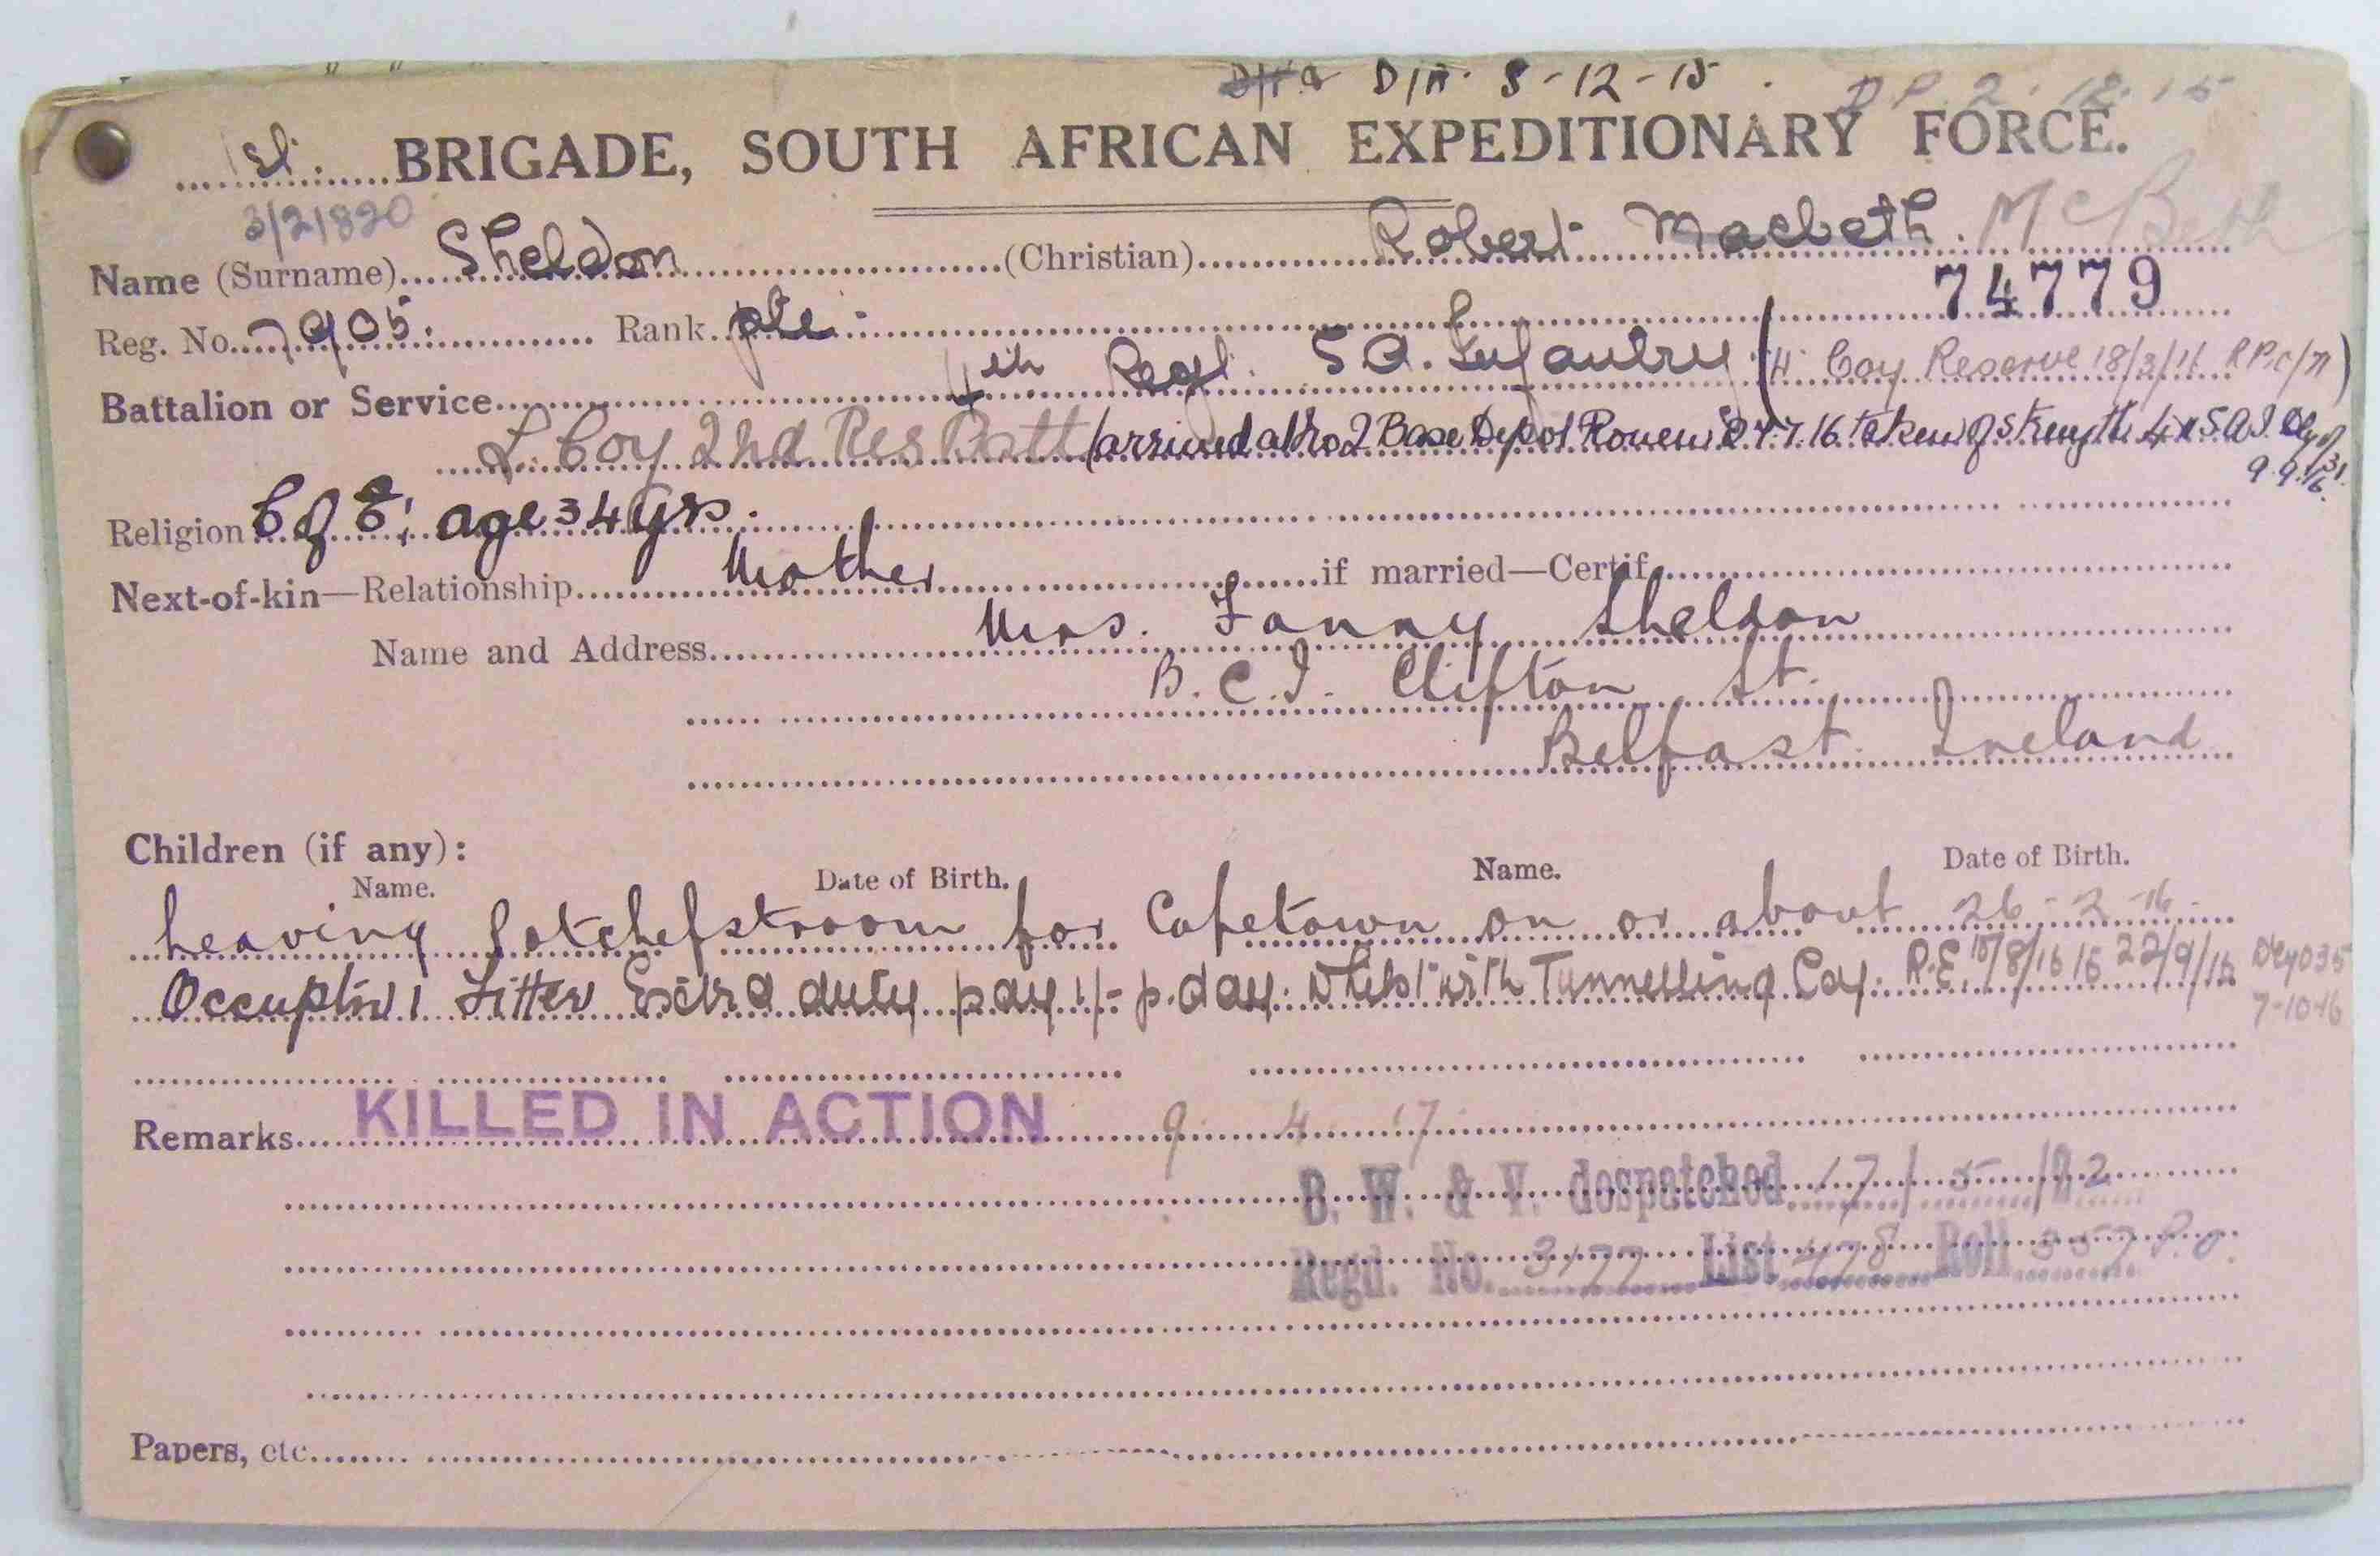 D/A 8-12-15 . D P. 2. 12. 15
1st. BRIGADE, SOUTH AFRICAN EXPEDITIONARY FORCE.
3/21820
Name (Surname) Sheldon (Christian) Robert Macbeth. McBeth
74779
Reg. No. 7905. Rank pte.
Battalion or Service 4th Regt. S A. Infantry (H Coy Reserve 18/3/16
L. Coy 2nd Res Batt (arrived at No 2 Base Depot Rouen 7.16 taken of strength 4th S A I
9.9.16
Religion C of E; age 34 yrs.
Next-of-kin—Relationship Mother if married—Certif.
Name and Address Mrs. Fanny Sheldon
B. C. I. Clifton St.
Belfast Ireland
Children (if any):
Name. Date of Birth. Name. Date of Birth.
Leaving Potchefstroom for Capetown on or about 26-2-16.
Occuptn: Fitter Extra duty pay 1/- p. day. Whilst with Tunnelling Coy. R.E. 18/8/16 to 22/9/16
7-10-16
Remarks KILLED IN ACTION 9. 4. 17.
B. W. & V. despatched 17/5/22
Regd. No. 3177 List 478 Roll 557
Papers, etc.